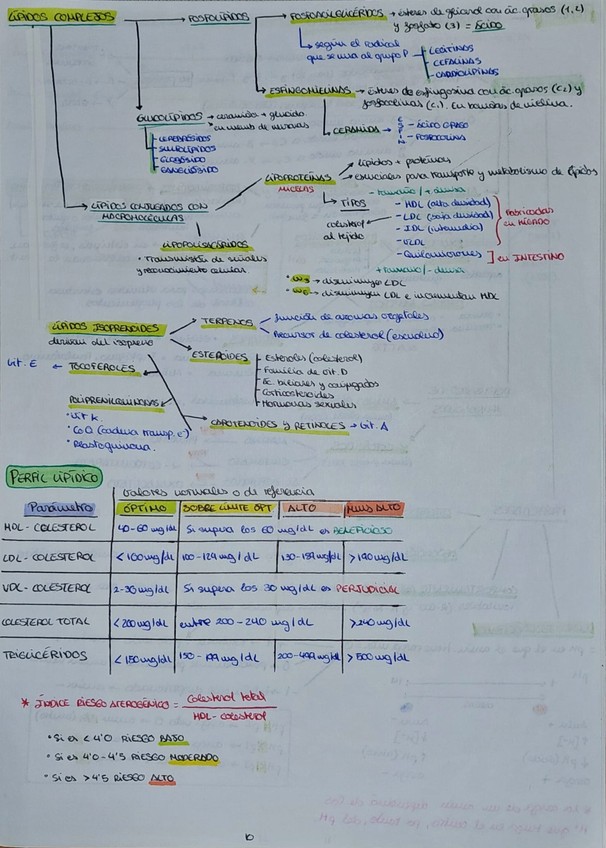 LÍPIDOS COMPLEJOS
FOSFOLÍPIDOS
FOSFOACILGLICÉRIDOS → ésteres de glicerol con ác. grasos (1,2)
y fosfato (3) = ÁCIDO
según el radical
que se una al grupo P
LECITINAS
CEFALINAS
CARDIOLIPINAS
ESFINGOMIELINAS → ésteres de esfingosina con ác. grasos (C2) y
fosfocolinas (C1). En bandas de mielina.
CERAMIDA
ÁCIDO GRASO
FOSFOCOLINA
GLUCOLÍPIDOS → ceramida + glúcido
CEREBRÓSIDOS
SULFOLÍPIDOS
GLOBÓSIDO
GANGLIÓSIDO
LÍPIDOS CONJUGADOS CON
MACROMOLÉCULAS
LIPOPROTEÍNAS
MICELAS
Lípidos + proteínas
esenciales para transporte y metabolismo de lípidos
TIPOS
- tamaño / + densa
- HDL (alta densidad)
- LDL (baja densidad)
- IDL (intermedia)
- VLDL
- Quilomicrones
+ tamaño / - densa
Fabricadas
en HÍGADO
] en INTESTINO
colesterol
al tejido
LIPOPOLISACÁRIDOS
• Transmisión de señales
y reconocimiento celular.
• W3 → disminuyen LDL
• W6 → disminuyen LDL e incrementan HDL
LÍPIDOS ISOPRENOIDES
derivan del isopreno
TERPENOS
función de aromas vegetales
Precursor de colesterol (escualeno)
ESTEROIDES
Esteroles (colesterol)
Familia de vit. D
Ác. biliares y conjugados
Corticosteroides
Hormonas sexuales
Vit. E ← TOCOFEROLES
POLIPRENILQUINONAS
• Vit K.
• CoQ (cadena transp. e-)
• Plastoquinona.
CAROTENOIDES Y RETINOLES → Vit. A
PERFIL LIPÍDICO
Valores normales o de referencia
Parámetro ÓPTIMO SOBRE LÍMITE OPT ALTO MUY ALTO
HDL - COLESTEROL 40-60 mg/dL Si supera los 60 mg/dL es BENEFICIOSO
LDL - COLESTEROL <100 mg/dL 100-129 mg/dL 130-159 mg/dL >190 mg/dL
VLDL - COLESTEROL 2-30 mg/dL Si supera los 30 mg/dL es PERJUDICIAL
COLESTEROL TOTAL <200 mg/dL entre 200-240 mg/dL >240 mg/dL
TRIGLICÉRIDOS <150 mg/dL 150-199 mg/dL 200-499 mg/dL >500 mg/dL
* ÍNDICE RIESGO ATEROGÉNICO = Colesterol total
HDL-colesterol
• Si es < 4'0 RIESGO BAJO
• Si es 4'0-4'5 RIESGO MODERADO
• Si es >4'5 RIESGO ALTO
10